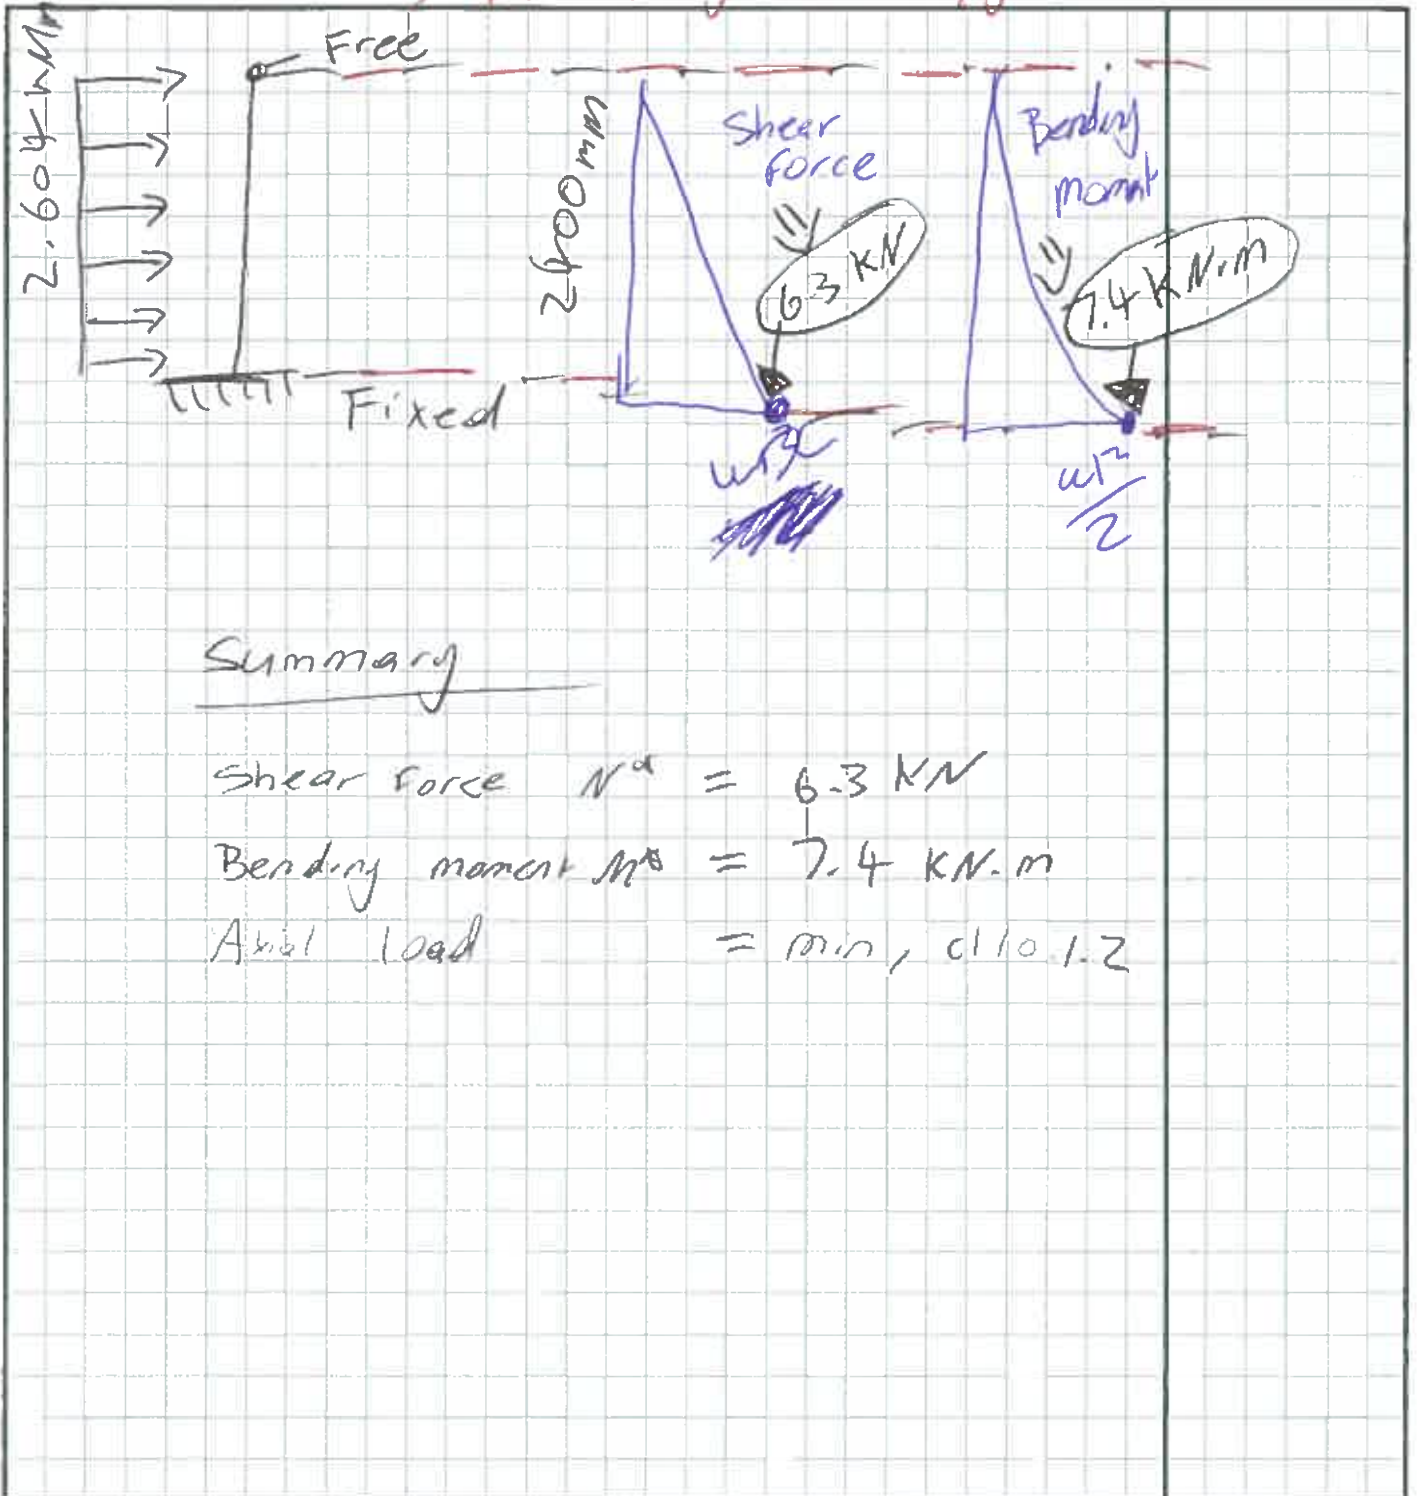 Free
2.604 kN/m
2400mm
Shear
force
6.3 KN
Bending
moment
7.4 KN.m
Fixed
wl²
2
Summary
Shear Force N* = 6.3 KN
Bending moment M* = 7.4 KN.m
Axial Load = min, cl10.1.2